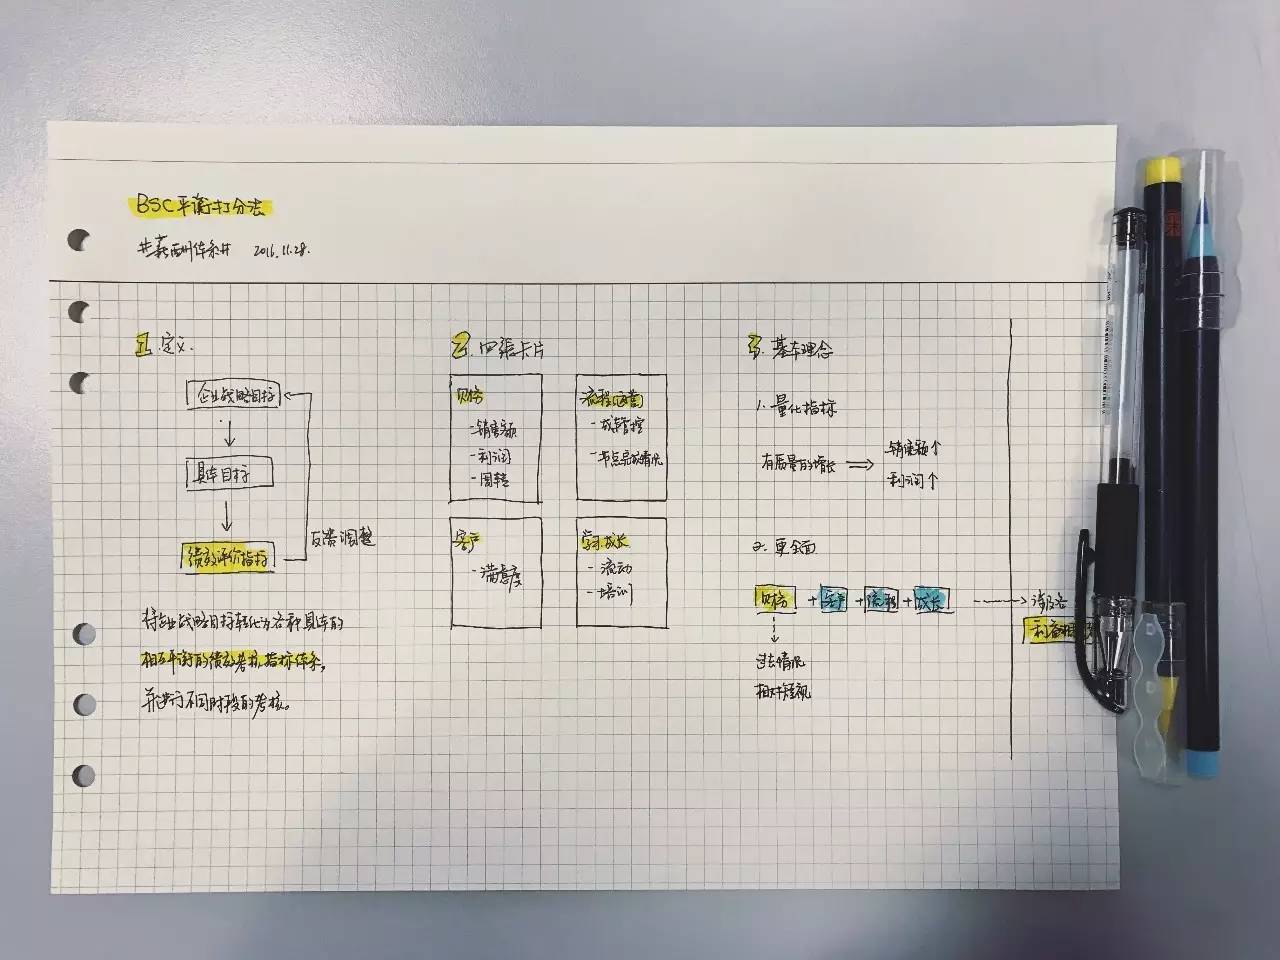 BSC平衡打分法
#薪酬体系# 2016.11.28.
1. 定义.
企业战略目标
具体目标
绩效评价指标
反馈调整
将企业战略目标转化为各种具体的
相互平衡的绩效考核指标体系,
并进行不同时段的考核。
2. 四张卡片
财务
-销售额
-利润
-周转
流程(运营)
-成本管控
-节点完成情况
客户
-满意度
学习成长
-流动
-培训
3. 基本理念
1. 量化指标
有质量的增长 ⇒ 销售额↑
利润↑
2. 更全面
财务 + 客户 + 流程 + 成长
过去情况
相对短视
利益相